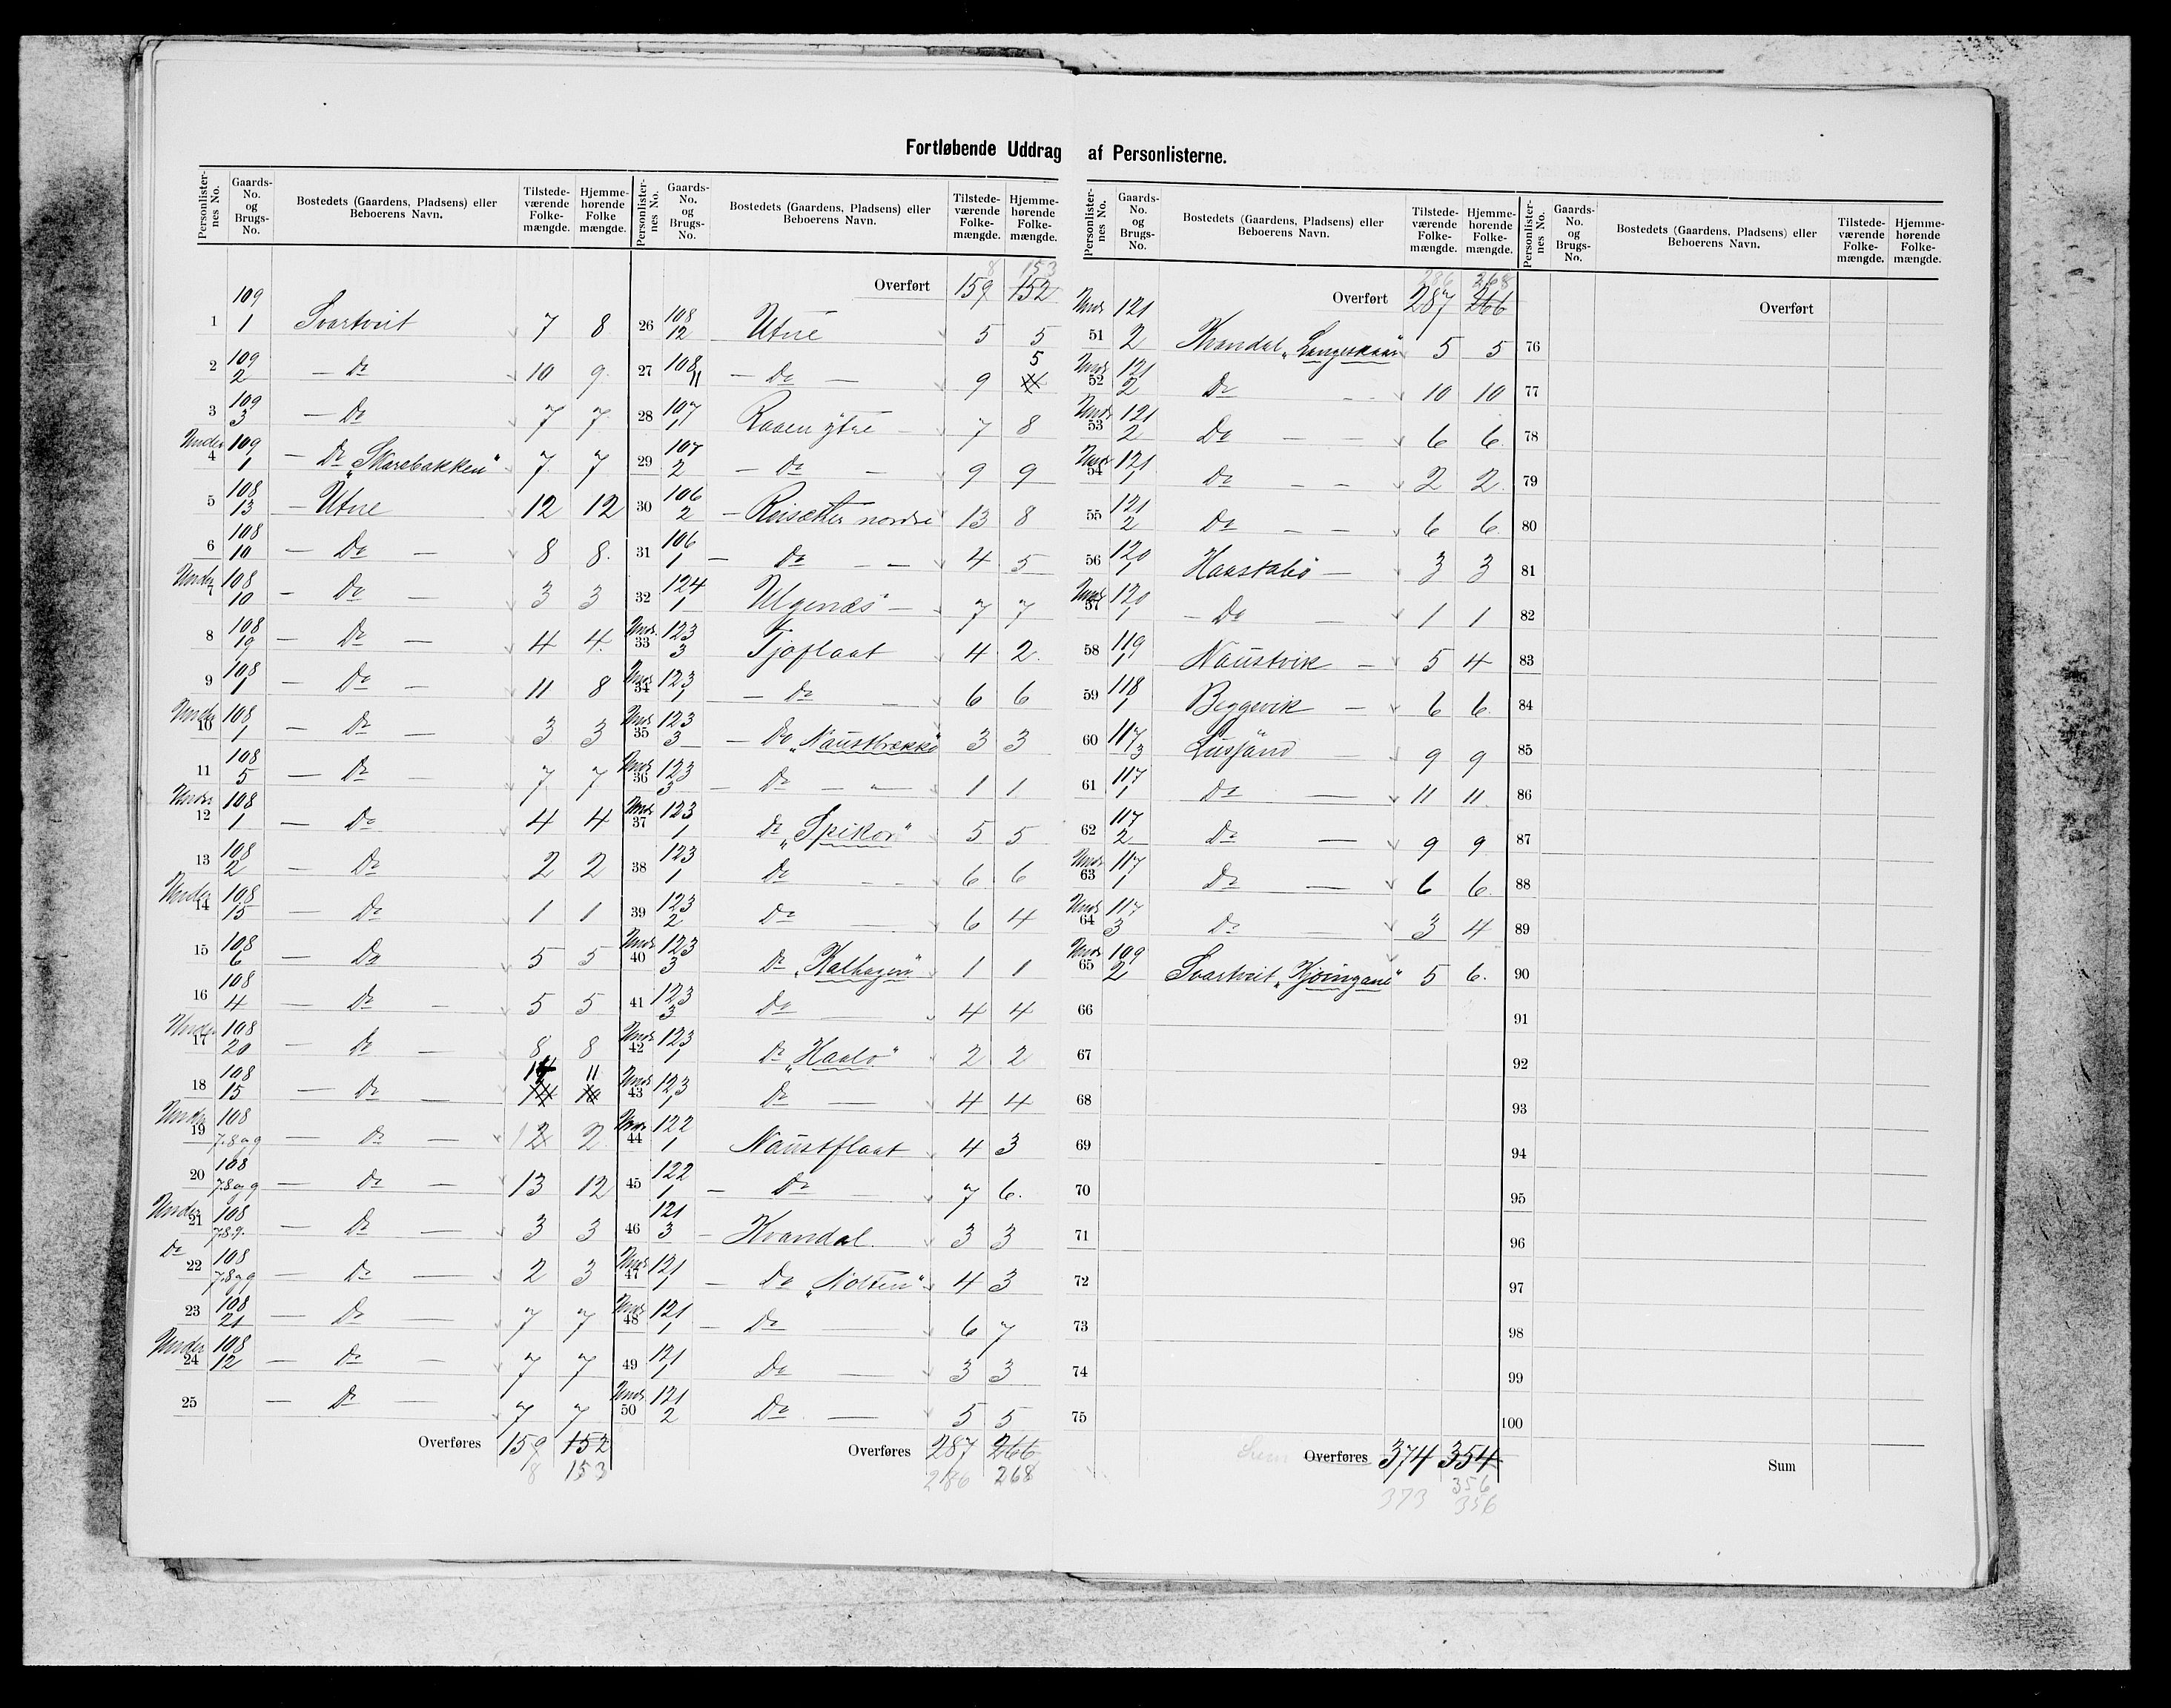 Fortløbende Uddrag af Personlisterne.
Personlister-nes No. Gaards-No. og Brugs-No. Bostedets (Gaardens, Pladsens) eller Beboerens Navn. Tilstede-værende Folke-mængde. Hjemme-hørende Folke mængde.
1 109/1 Svartveit 7 8
2 109/2 — Do 10 9
3 109/3 — Do 7 7
Under 4 109/1 — Do „Skarebakken" 7 7
5 108/13 — Utne 12 12
6 108/10 — Do — 8 8
Under 7 108/10 — Do — 3 3
8 108/19 — Do — 4 4
9 108/1 — Do — 11 8
Under 10 108/1 — Do — 3 3
11 108/5 — Do — 7 7
Under 12 108/1 — Do 4 4
13 108/2 — Do 2 2
Under 14 108/15 — Do 1 1
15 108/6 — Do 5 5
16 108/4 — Do — 5 5
Under 17 108/20 — Do — 8 8
18 108/15 — Do — 11
Under 19 108/7.8 og 9 — Do — 2 2
20 108/7.8 og 9 — Do — 13 12
Under 21 108/7.8.9. — Do — 3 3
Do 22 108/7.8 og 9 — Do — 2 3
23 108/21 — Do — 7 7
Under 24 108/12 — Do — 7 7
25 — Do — 7 7
Overføres 159 152
8 153
Personlister-nes No. Gaards-No. og Brugs-No. Bostedets (Gaardens, Pladsens) eller Beboerens Navn. Tilstede-værende Folke-mængde. Hjemme-hørende Folke-mængde.
8 153
Overført 159 152
26 108/12 Utne 5 5
27 108/11 — Do — 9 5
28 107/1 Raaen ytre — 7 8
29 107/2 — Do — 9 9
30 106/2 — Reisæter nordre 13 8
31 106/1 — Do — — 4 5
32 124/1 Ulgenæs — 7 7
Und. 33 123/3 Tjoflaat 4 2
Und. 34 123/1 — Do — 6 6
Und. 35 123/3 — Do „Naustbrække 3 3
Und. 36 123/3 — Do — — 1 1
Und. 37 123/1 Do „Spikor" 5 5
38 123/1 Do — — 6 6
39 123/2 Do — 6 4
Und. 40 123/3 Do „Kalhagen" 1 1
41 123/3 Do — 4 4
Und. 42 123/1 Do „Haalo" 2 2
Und. 43 123/1 Do — 4 4
Und. 44 122/1 Naustflaat 4 3
45 122/1 — Do — 7 6.
46 121/3 — Kvandal. 3 3
Und. 47 121/1 — Do „Nolten" 4 3
Und. 48 121/1 — Do — 6 7
49 121/1 Do — 3 3
Und. 50 121/2 Do — 5 5
Overføres 287 266
286 268
Personlister-nes No. Gaards-No. og Brugs-No. Bostedets (Gaardens, Pladsens) eller Beboerens Navn. Tilstede-værende Folke-mængde. Hjemme-hørende Folke-mængde.
286 268
Overført 287 266
Und. 51 121/2 Kvandal „Langeskaar" 5 5
Und. 52 121/2 Do — 10 10
Und. 53 121/2 Do — — 6 6.
Und. 54 121/1 Do — — 2 2
55 121/2 Do — — 6 6
56 120/1 Haastabø — 3 3
Und. 57 120/1 — Do — 1 1
58 119/1 Naustvik — 5 4
59 118/1 Beggevik — 6 6
60 117/3 Lussand — 9 9
61 117/1 Do — 11 11
62 117/2 Do — 9 9
Und. 63 117/1 Do — 6 6.
Und. 64 117/3 Do — 3 4
Und. 65 109/2 Svartveit „Kjøingane" 5 6.
66
67
68
69
70
71
72
73
74
75
Sum Overføres 374 354
373 356
356
Personlister-nes No. Gaards-No. og Brugs-No. Bostedets (Gaardens, Pladsens) eller Beboerens Navn. Tilstede-værende Folke-mængde. Hjemme-hørende Folke-mængde.
Overført
76
77
78
79
80
81
82
83
84
85
86
87
88
89
90
91
92
93
94
95
96
97
98
99
100
Sum